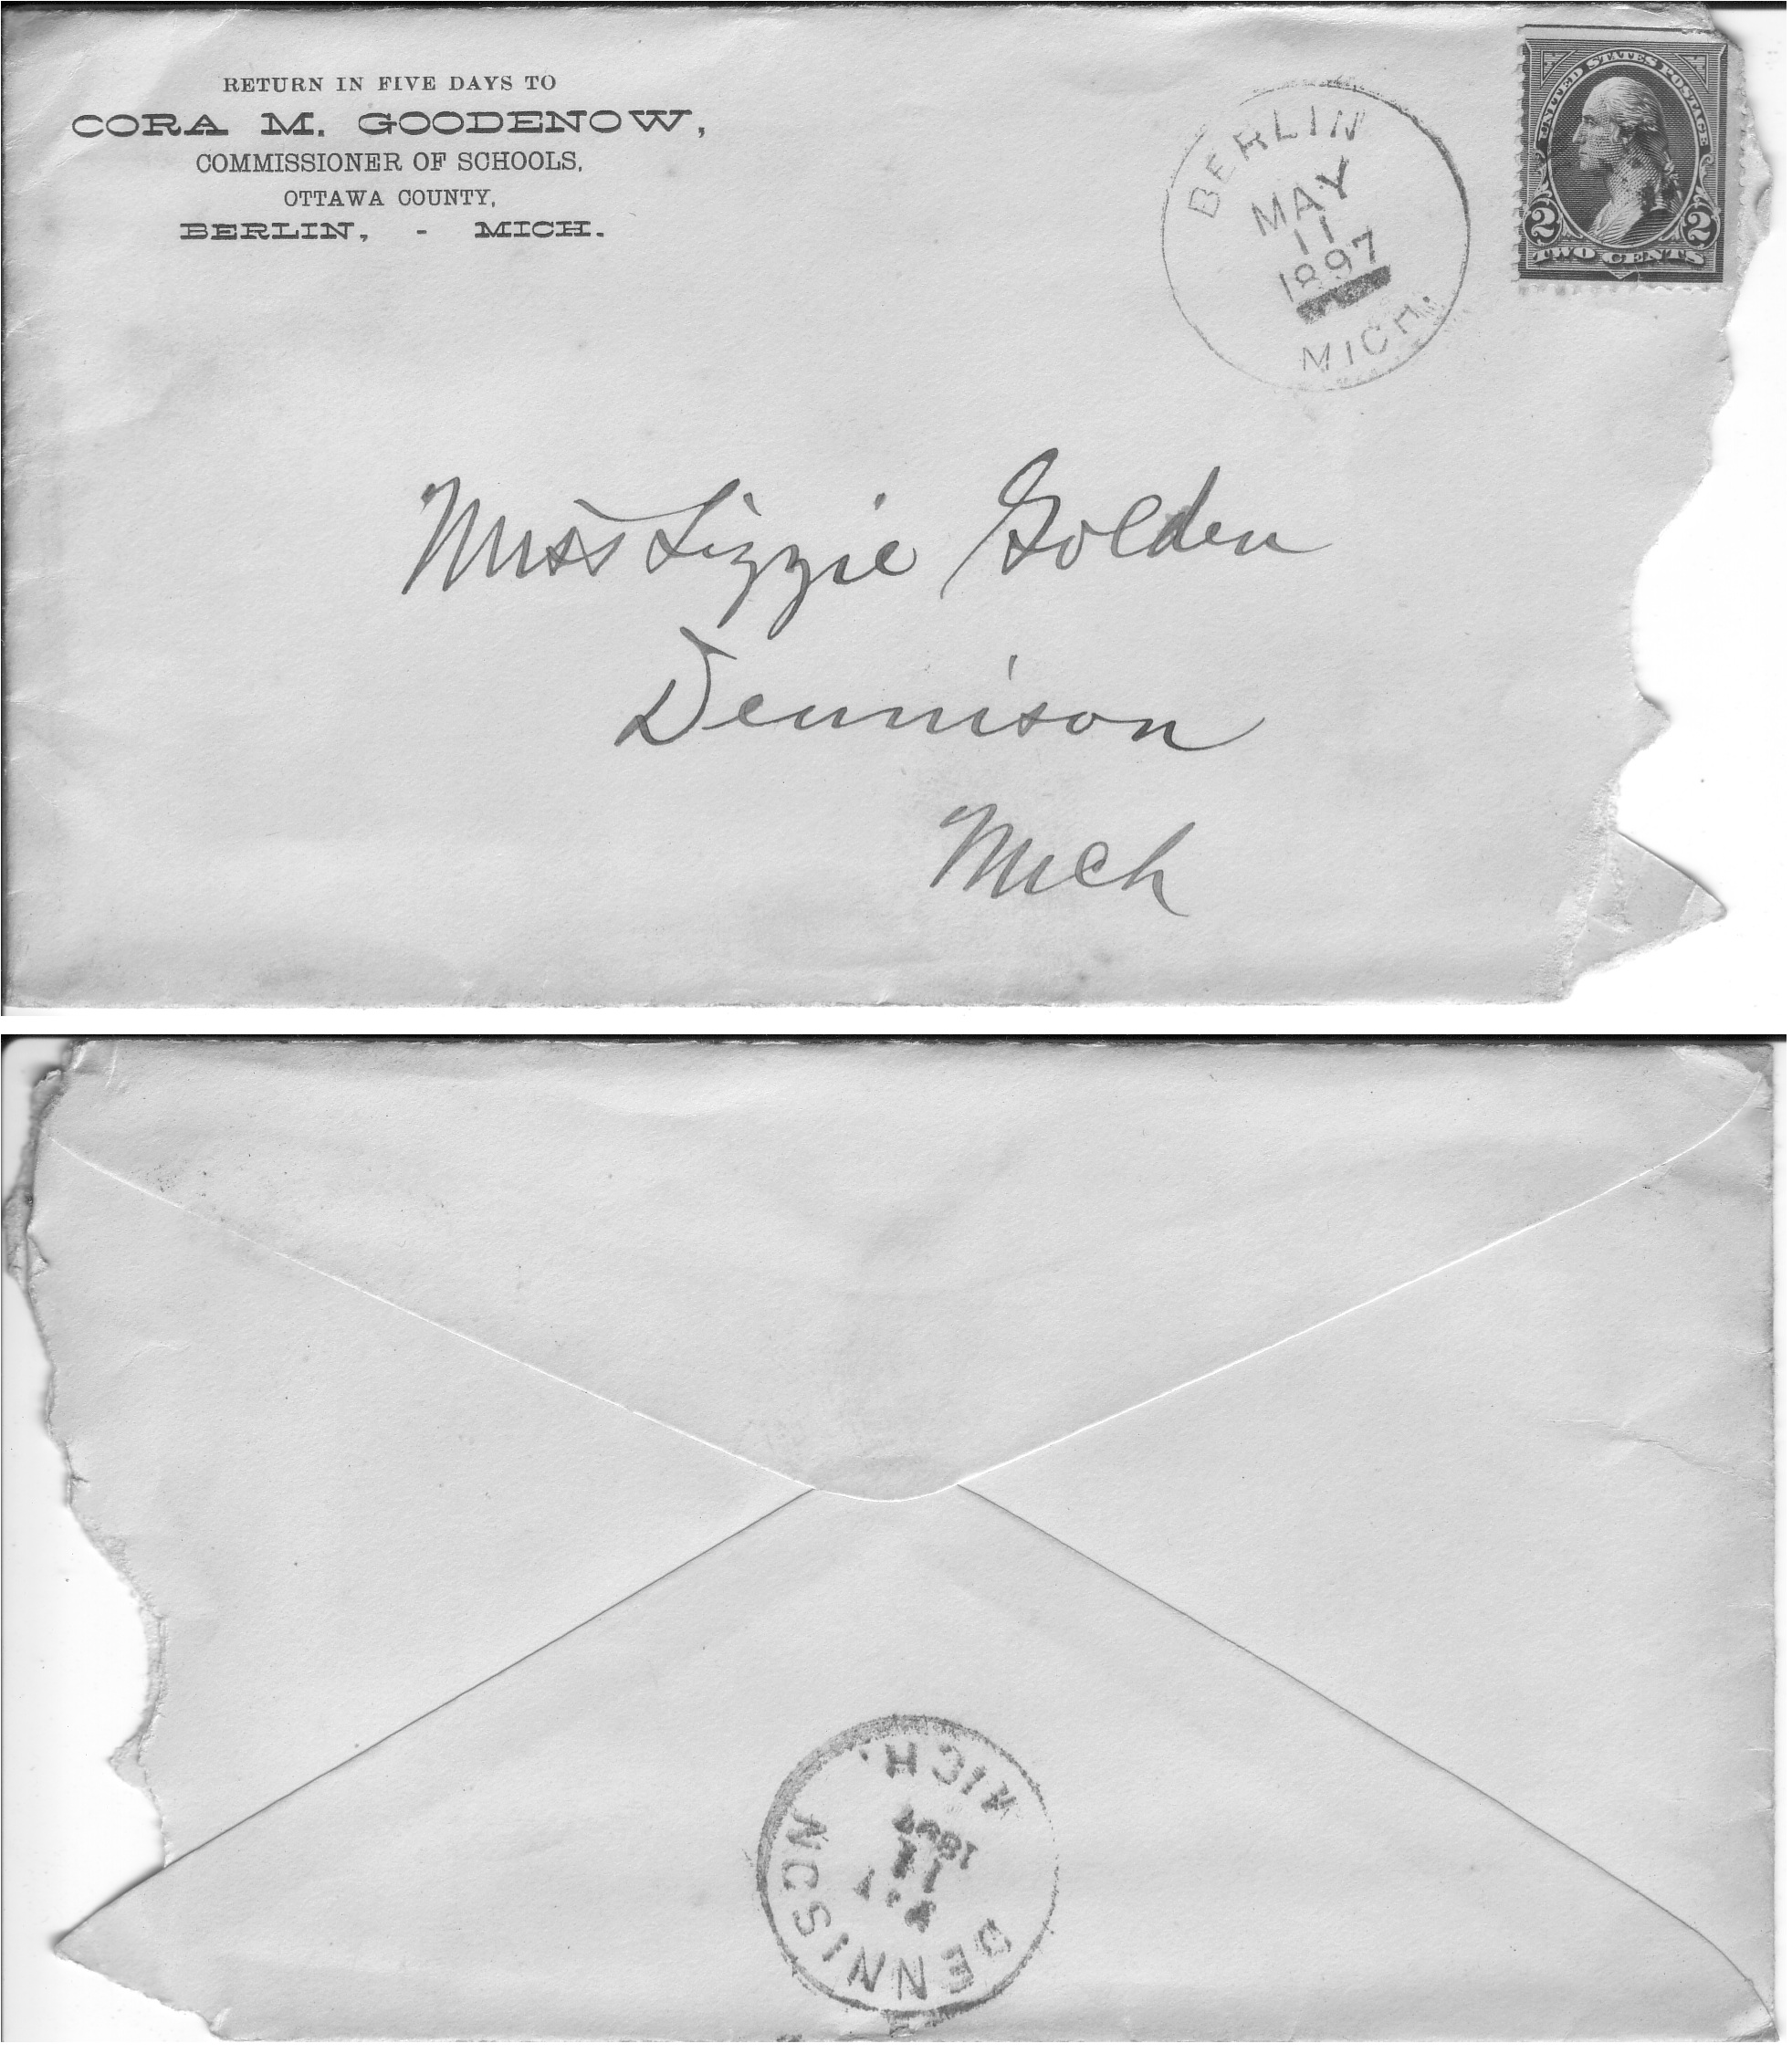 RETURN IN FIVE DAYS TO
CORA M. GOODENOW,
COMMISSIONER OF SCHOOLS,
OTTAWA COUNTY,
BERLIN, - MICH.
BERLIN
MAY
11
1897
MICH.
UNITED STATES POSTAGE
2 2
TWO CENTS
Miss Lizzie Golden
Dennison
Mich
DENNISON
MAY
11
1897
MICH.